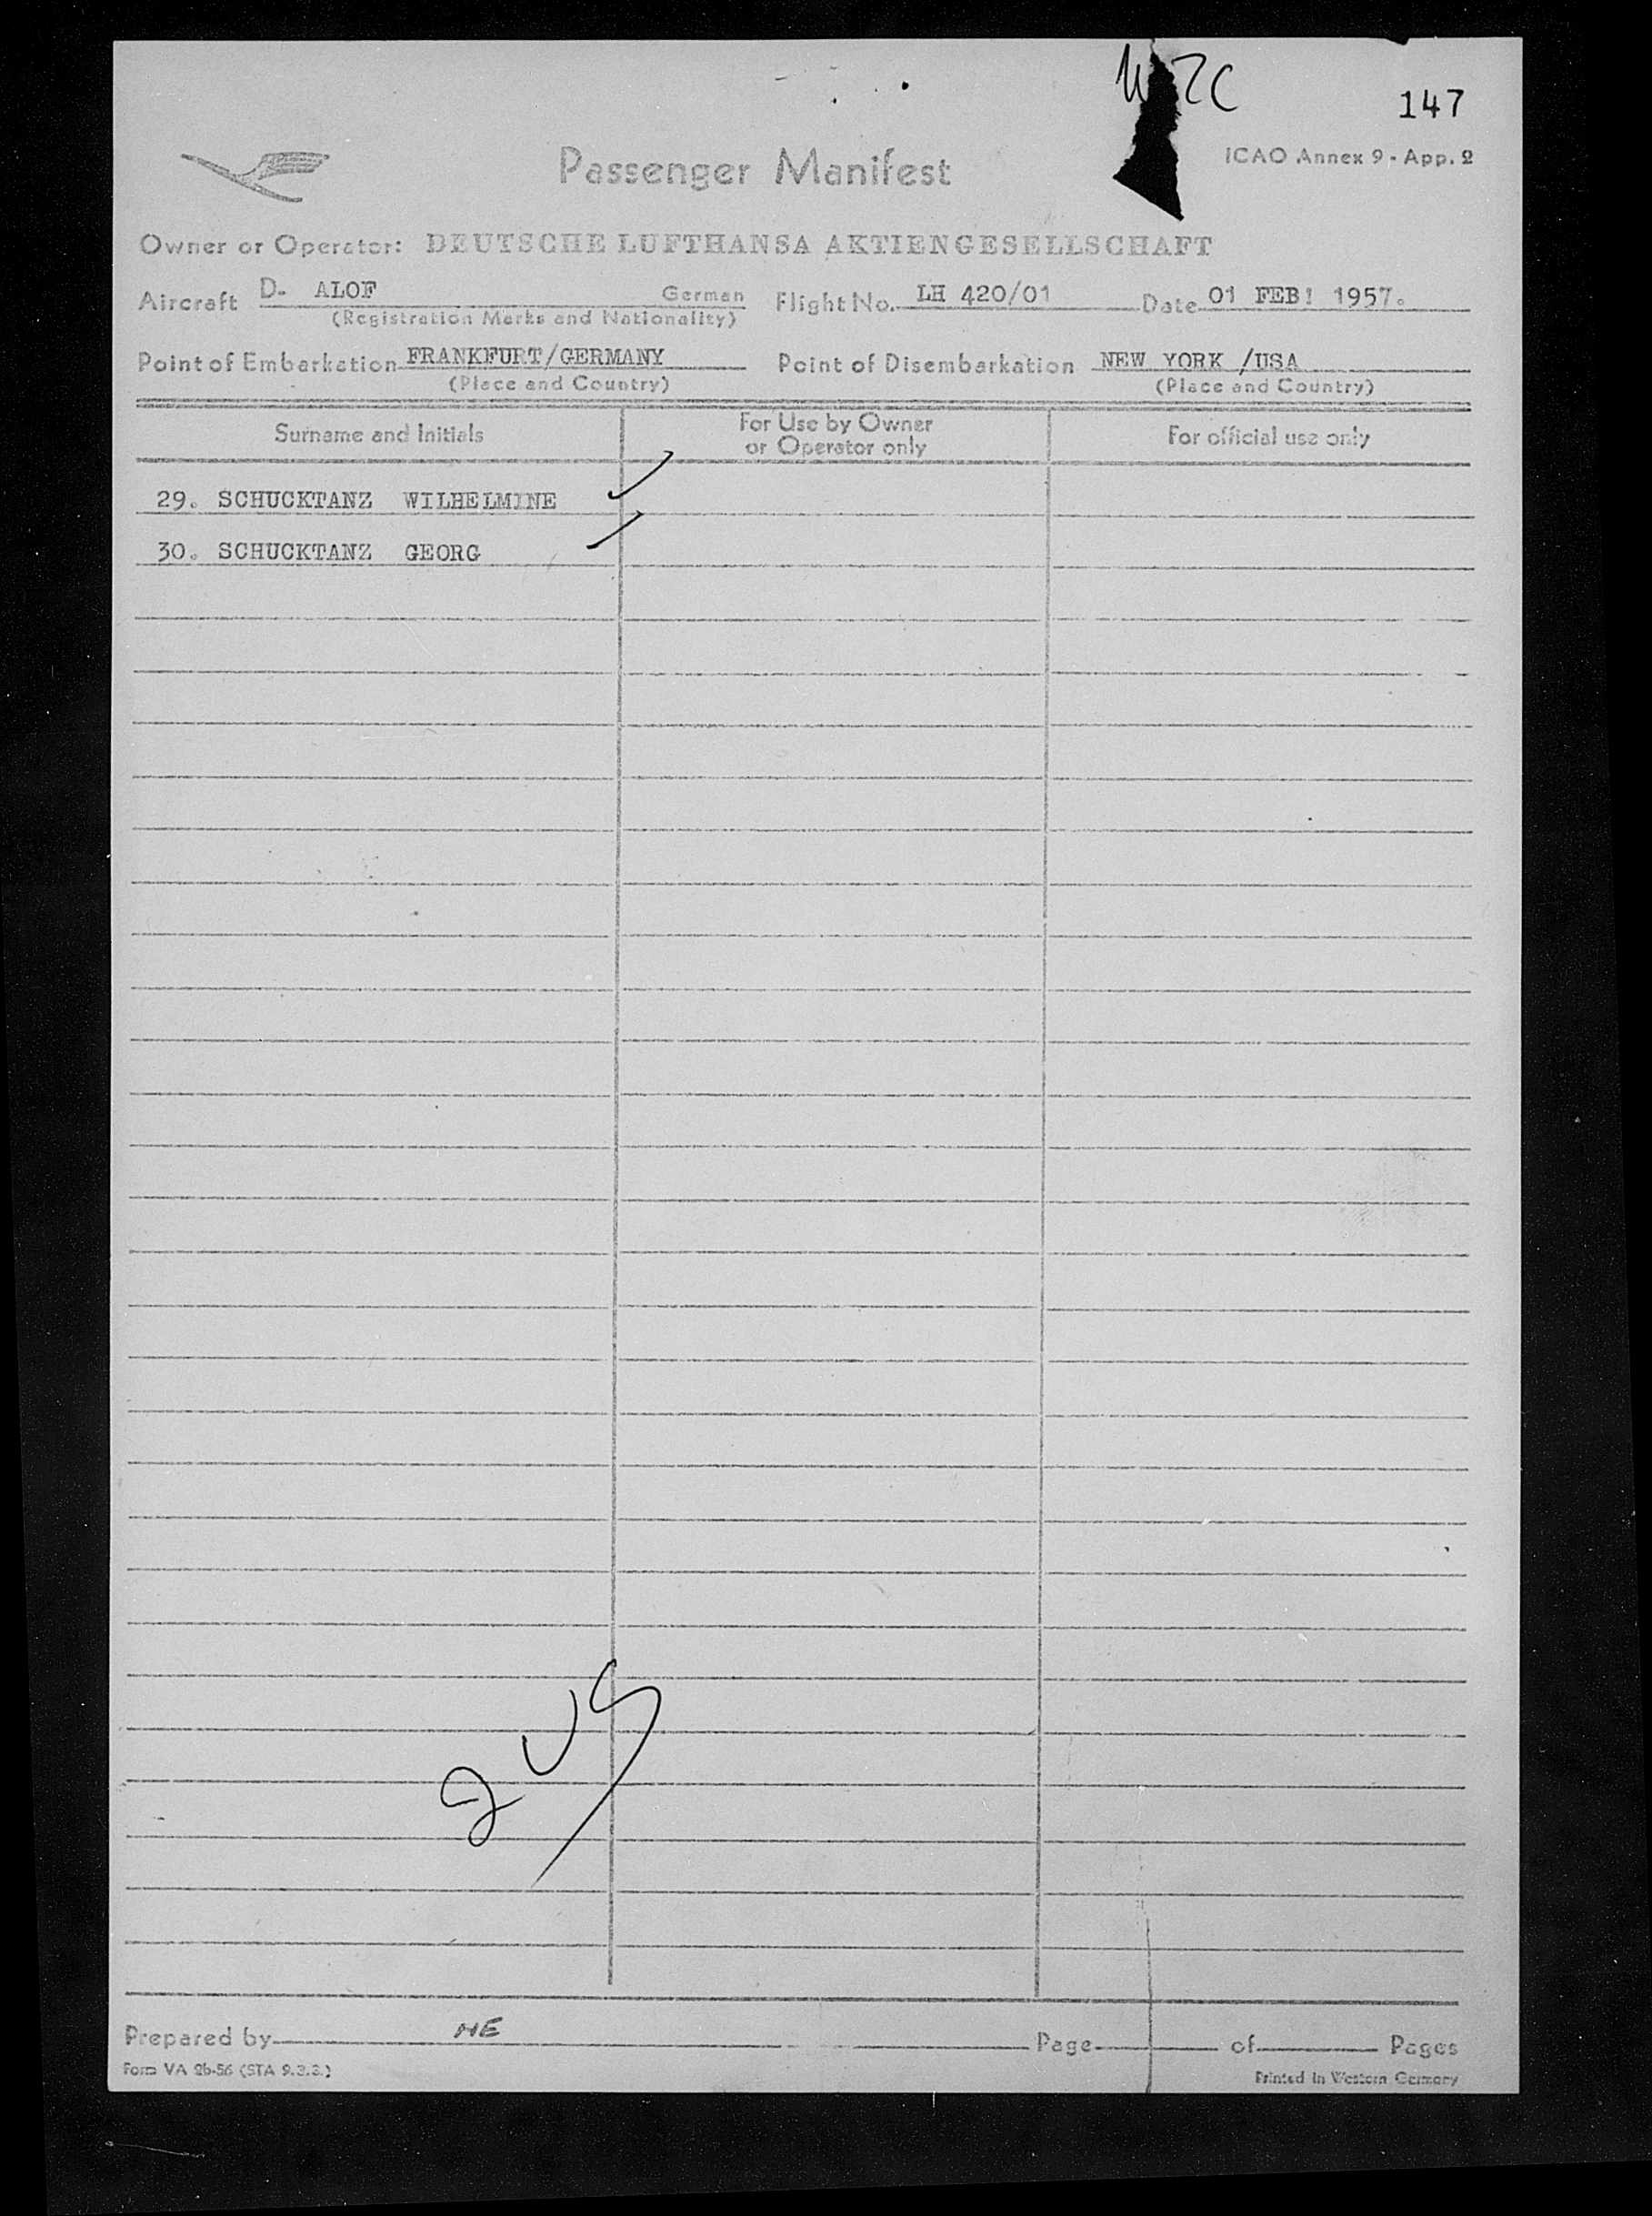 147
ICAO Annex 9 - App. 2
Passenger Manifest
Owner or Operator: DEUTSCHE LUFTHANSA AKTIENGESELLSCHAFT
Aircraft D- ALOF German Flight No. LH 420/01 Date 01 FEB! 1957.
(Registration Marks and Nationality)
Point of Embarkation FRANKFURT/GERMANY Point of Disembarkation NEW YORK /USA
(Place and Country) (Place and Country)
Surname and Initials For Use by Owner or Operator only For official use only
29. SCHUCKTANZ WILHELMINE
30. SCHUCKTANZ GEORG
2 US
Prepared by HE Page of Pages
Form VA 2b-56 (STA 9.3.3.) Printed in Western Germany